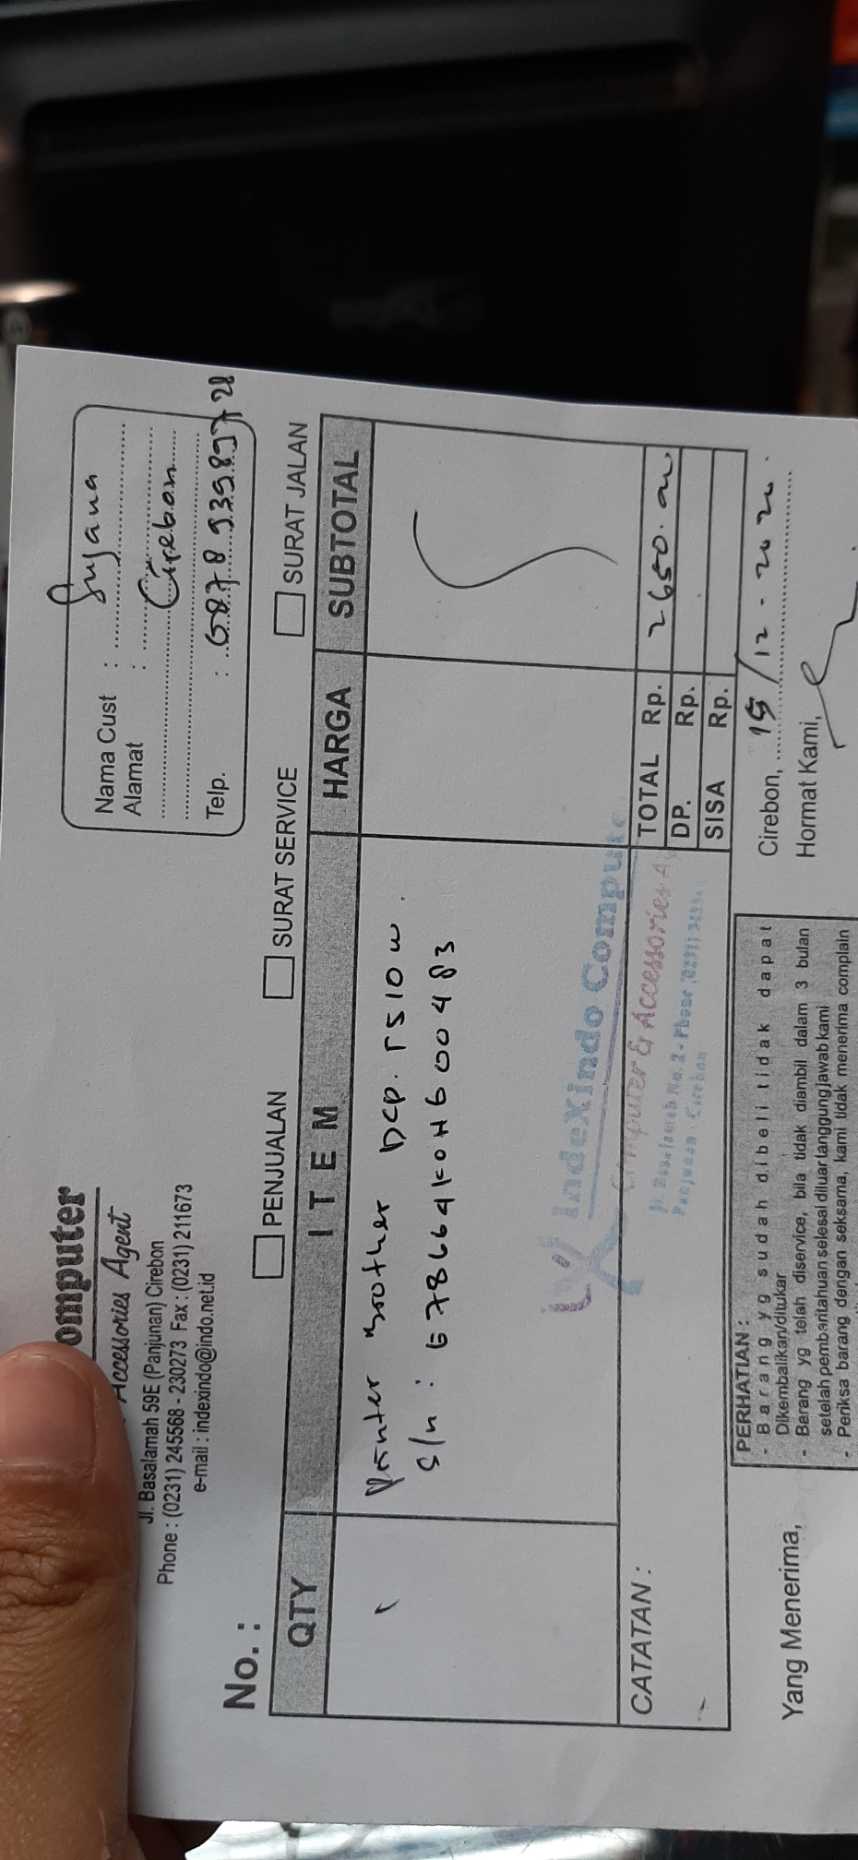 omputer
Accessories Agent
Jl. Basalamah 59E (Panjunan) Cirebon
Phone : (0231) 245568 - 230273 Fax : (0231) 211673
e-mail : indexindo@indo.net.id
Nama Cust :
Alamat : Cirebon
Telp. :
No. :
PENJUALAN SURAT SERVICE SURAT JALAN
QTY ITEM HARGA SUBTOTAL
Printer Brother DCP. T510w.
S/n :
IndeXindo Compute
Computer & Accessories A
Panjunan - Cirebon
CATATAN :
TOTAL Rp. 2650.
DP. Rp.
SISA Rp.
PERHATIAN :
- Barang yg sudah dibeli tidak dapat
Dikembalikan/ditukar
- Barang yg telah diservice, bila tidak diambil dalam 3 bulan
setelah pemberitahuan selesai diluar tanggung jawab kami
- Periksa barang dengan seksama, kami tidak menerima complain
Cirebon, 15/12-2020.
Hormat Kami,
Yang Menerima,